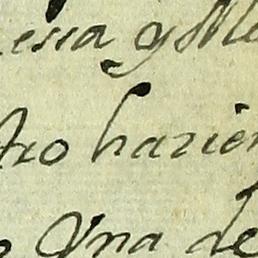 essa y Me
tro hazien
Vna de